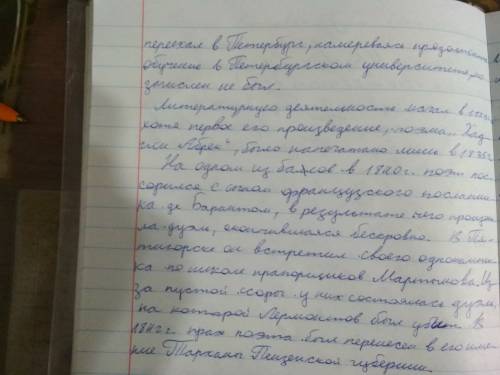 переехал в Петербург, намереваясь продолжить
обучение в Петербургском университете, но
зачислен не был.
Литературную деятельность начал в
хотя первое его произведение, поэма „Хад-
жи Абрек", было напечатано лишь в 1835 г.
На одном из балов в 1840 г. поэт пос-
сорился с сыном французского посланни-
ка де Барантом, в результате чего произош-
ла дуэль, окончившаяся бескровно. В Пя-
тигорске он встретил своего однокашни-
ка по школе прапорщиков Мартынова. Из-
за пустой ссоры у них состоялась дуэль,
на которой Лермонтов был убит. В
1842 г. прах поэта был перенесен в его име-
ние Тарханы Пензенской губернии.